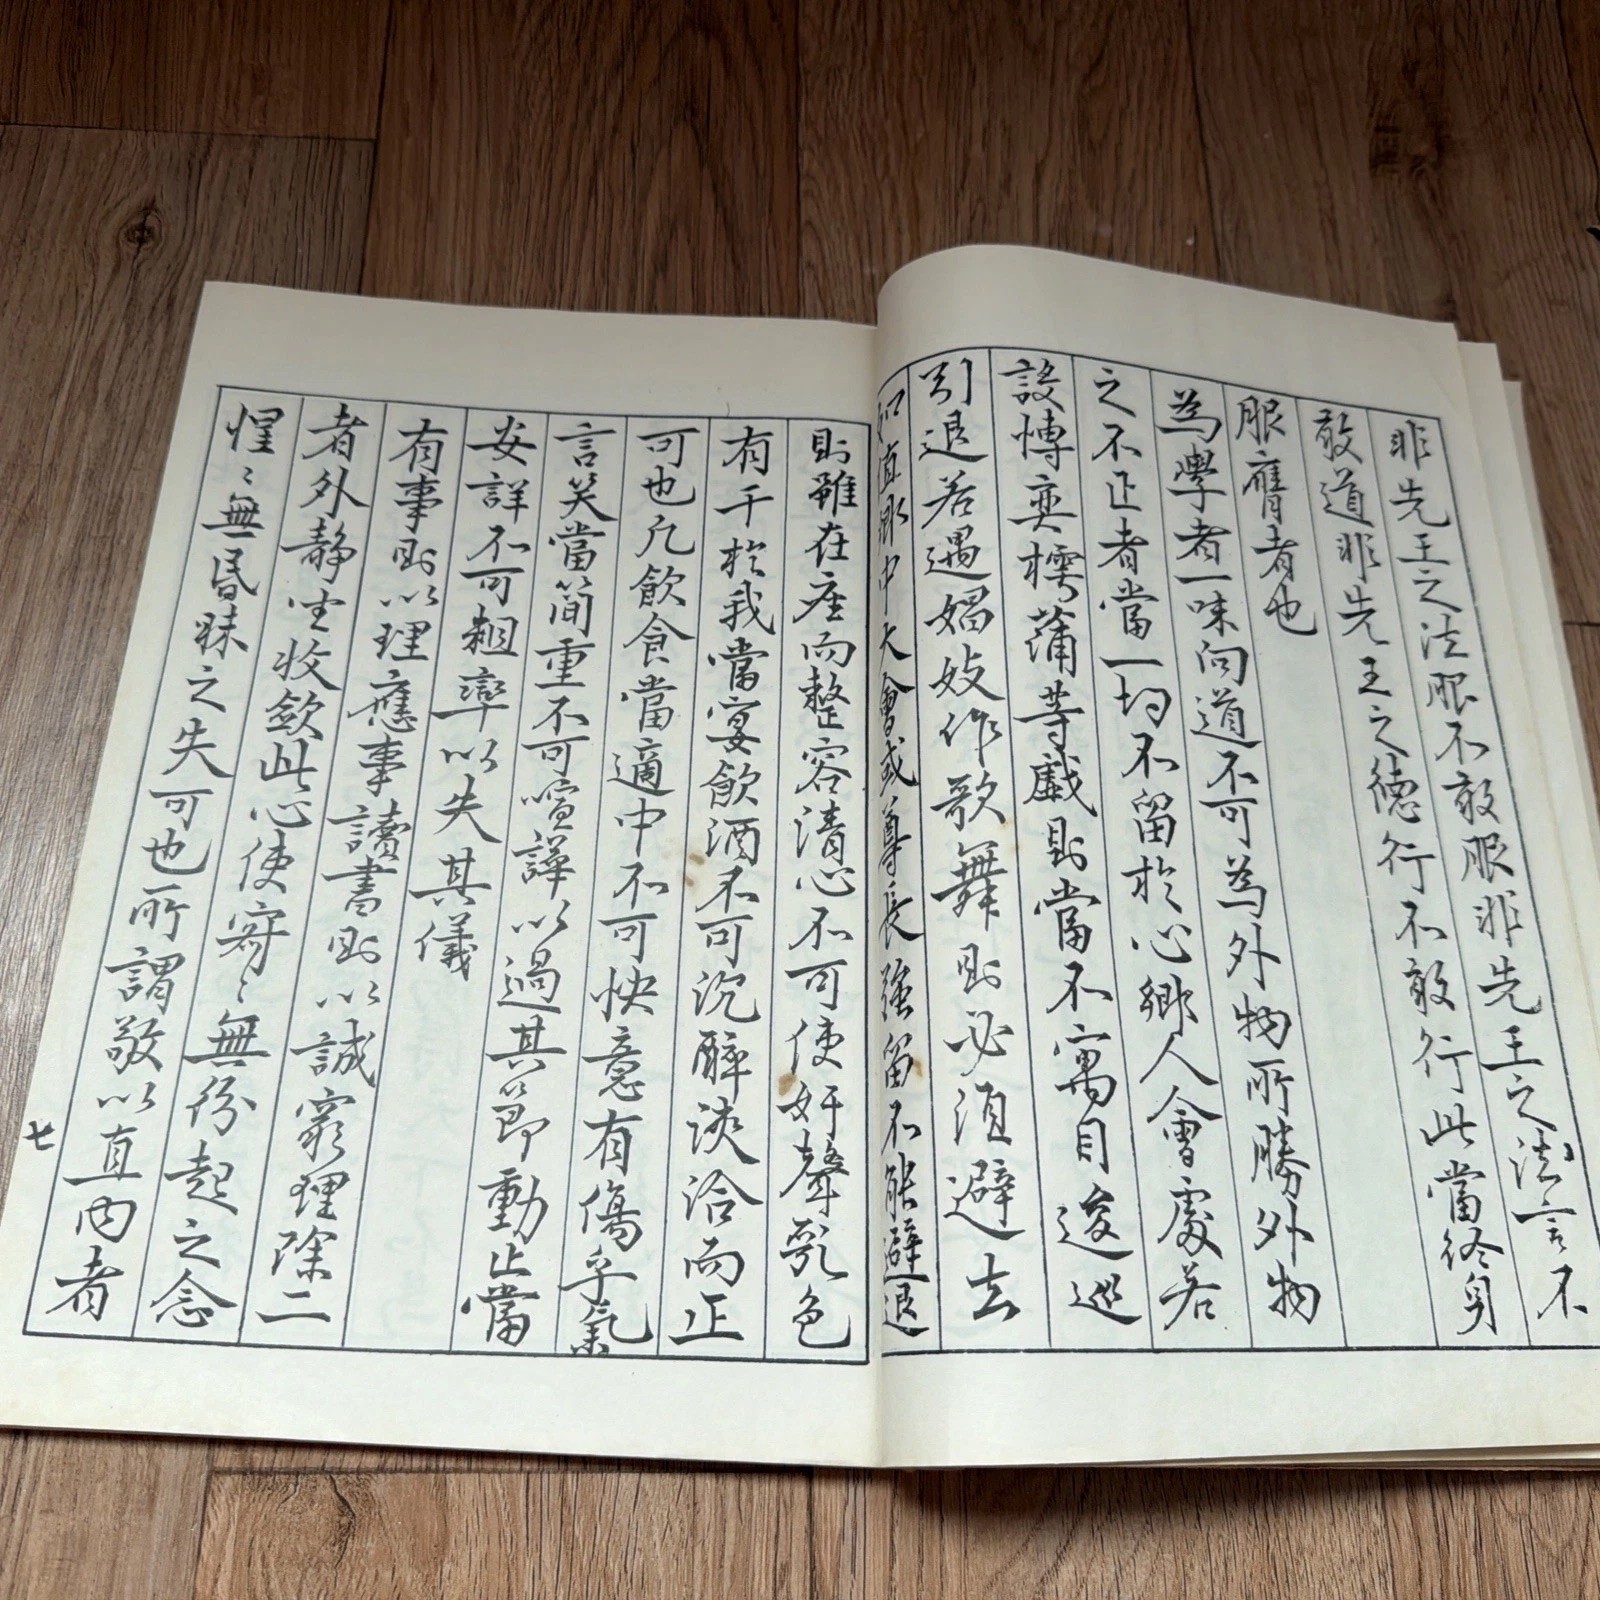 非先王之法服不敢服非先王之法言不
敢道非先王之德行不敢行此當終身
服膺者也
為學者一味向道不可為外物所勝外物
之不正者當一切不留於心鄉人會處若
設愽奕樗蒲等戱則當不寓目逡巡
引退若遇娼妓作歌舞則必須避去
如值鄉中大會或尊長強留不能避退
則雖在座而整容清心不可使奸聲亂色
有干於我當宴飲酒不可沉醉浹洽而止
可也凡飲食當適中不可快意有傷乎氣
言笑當簡重不可喧譁以過其節動止當
安詳不可粗率以失其儀
有事則以理應事讀書則以誠窮理除二
者外靜坐收斂此心使寂〻無紛起之念
惺〻無昏昧之失可也所謂敬以直內者
七